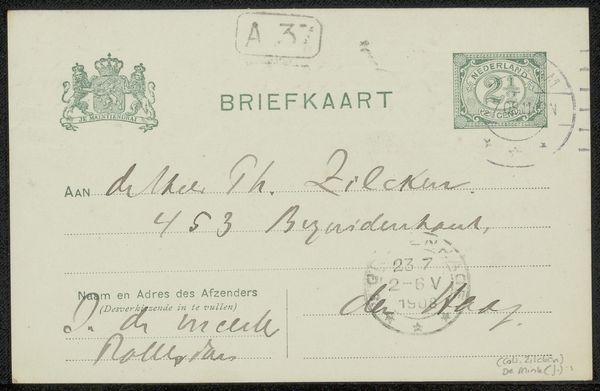 A 37
BRIEFKAART
JE MAINTIENDRAI
NEDERLAND
2½
CENT
AAN de Heer Th. Zilcken.
453 Bezuidenhout,
den Haag.
23 7
2-6 V
1908
Naam en Adres des Afzenders
(Desverkiezende in te vullen)
J. de Meester
Rotterdam
(Coll. Zilcken)